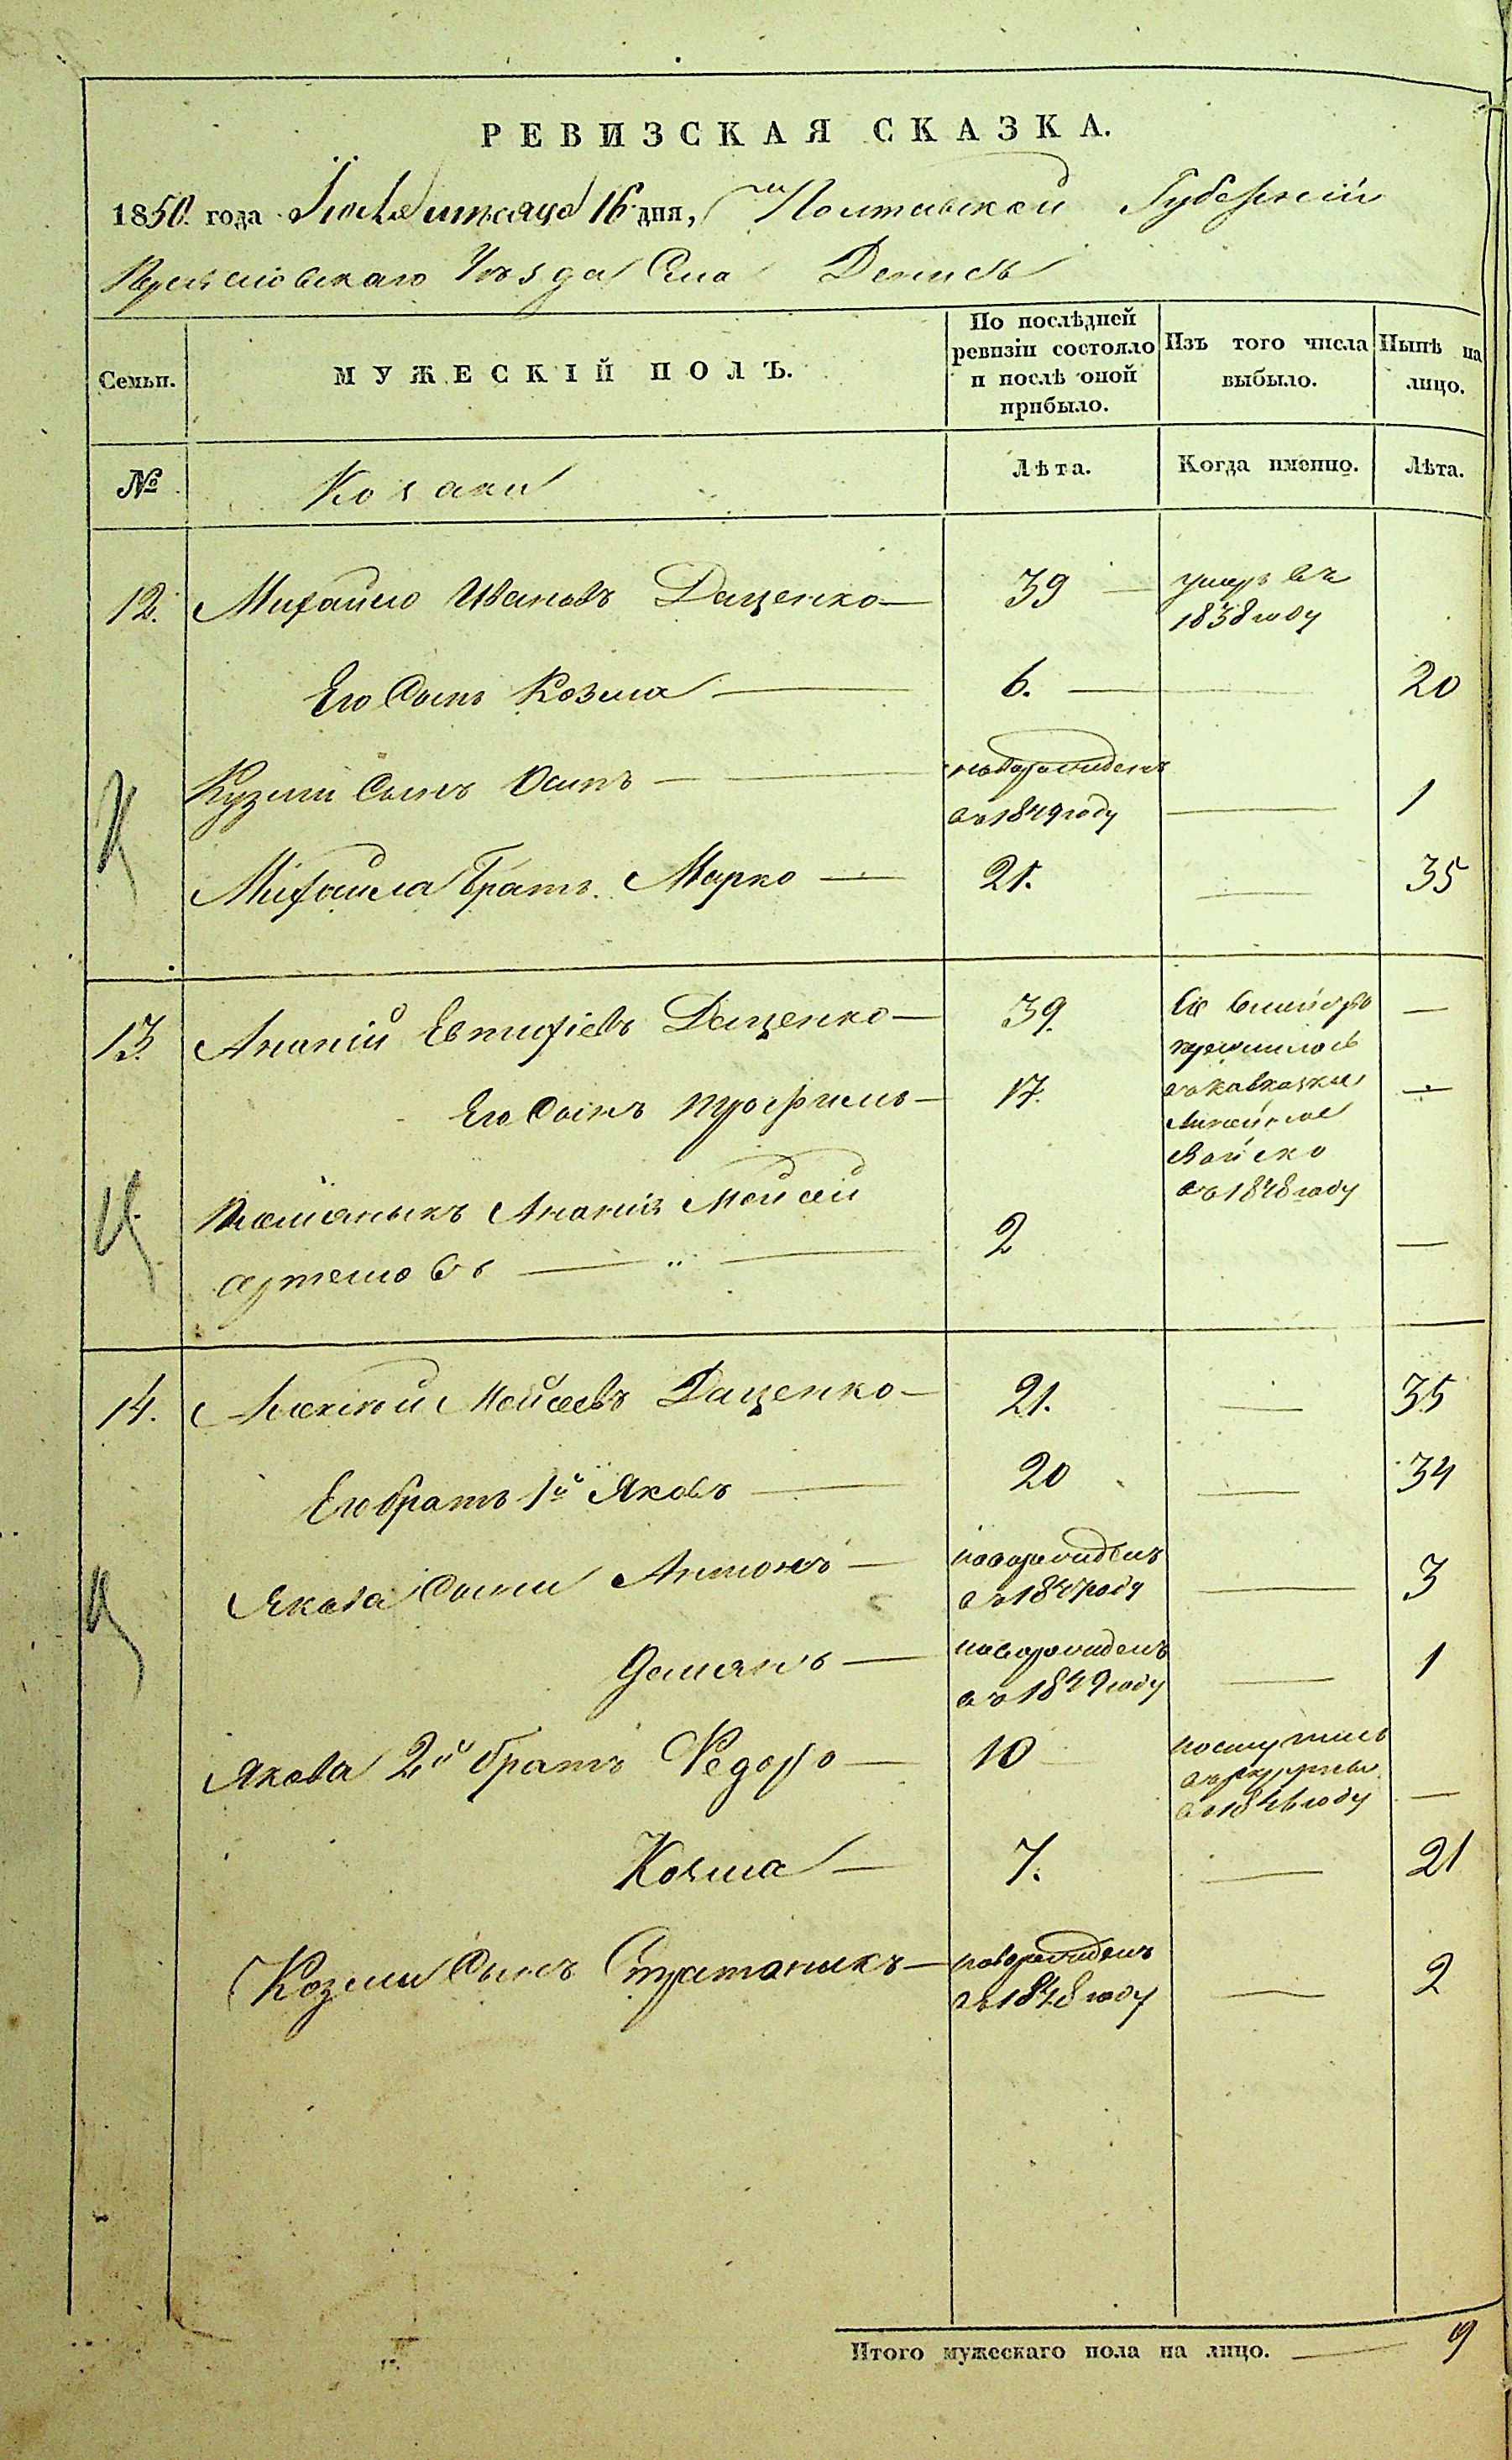 РЕВИЗСКАЯ СКАЗКА.
1850. года Июля месяца 16 дня, Полтавской Губернии
Переяславскаго Уезда Села Денисъ
Семьи.
МУЖЕСКІЙ ПОЛЪ.
По послѣдней
ревизіи состояло
и послѣ оной
прибыло.
Изъ того числа
выбыло.
Нынѣ на
лицо.
№
Козаки
Лѣта.
Когда именно.
Лѣта.
12. Михайло Ивановъ Даценко 39 умеръ въ
1838 году
Его Сынъ Козма 6. 20
Кузмы Сынъ Осипъ новорожденъ
въ 1849 году 1
Михайла Братъ Марко 21. 35
13. Ананій Евтифіевъ Даценко 39. Сіе Семейство
переселилось
Его Сынъ Трофимъ 17. въ Кавказкое
Линейное
Войско
въ 1848 году
Племяныкъ Ананія Мойсей
Артемовъ 2
14. Алексій Мойсеевъ Даценко 21. 35
Его братъ 1й Яковъ 20 34
Якова Сыны Антонъ новорожденъ
въ 1847 году 3
Демянъ новорожденъ
въ 1849 году 1
Якова 2й братъ Федоръ 10 поступилъ
въ рекруты
въ 1846 году
Козма 7. 21
Козмы Сынъ Стратоныкъ новорожденъ
въ 1848 году 2
Итого мужескаго пола на лицо. 9